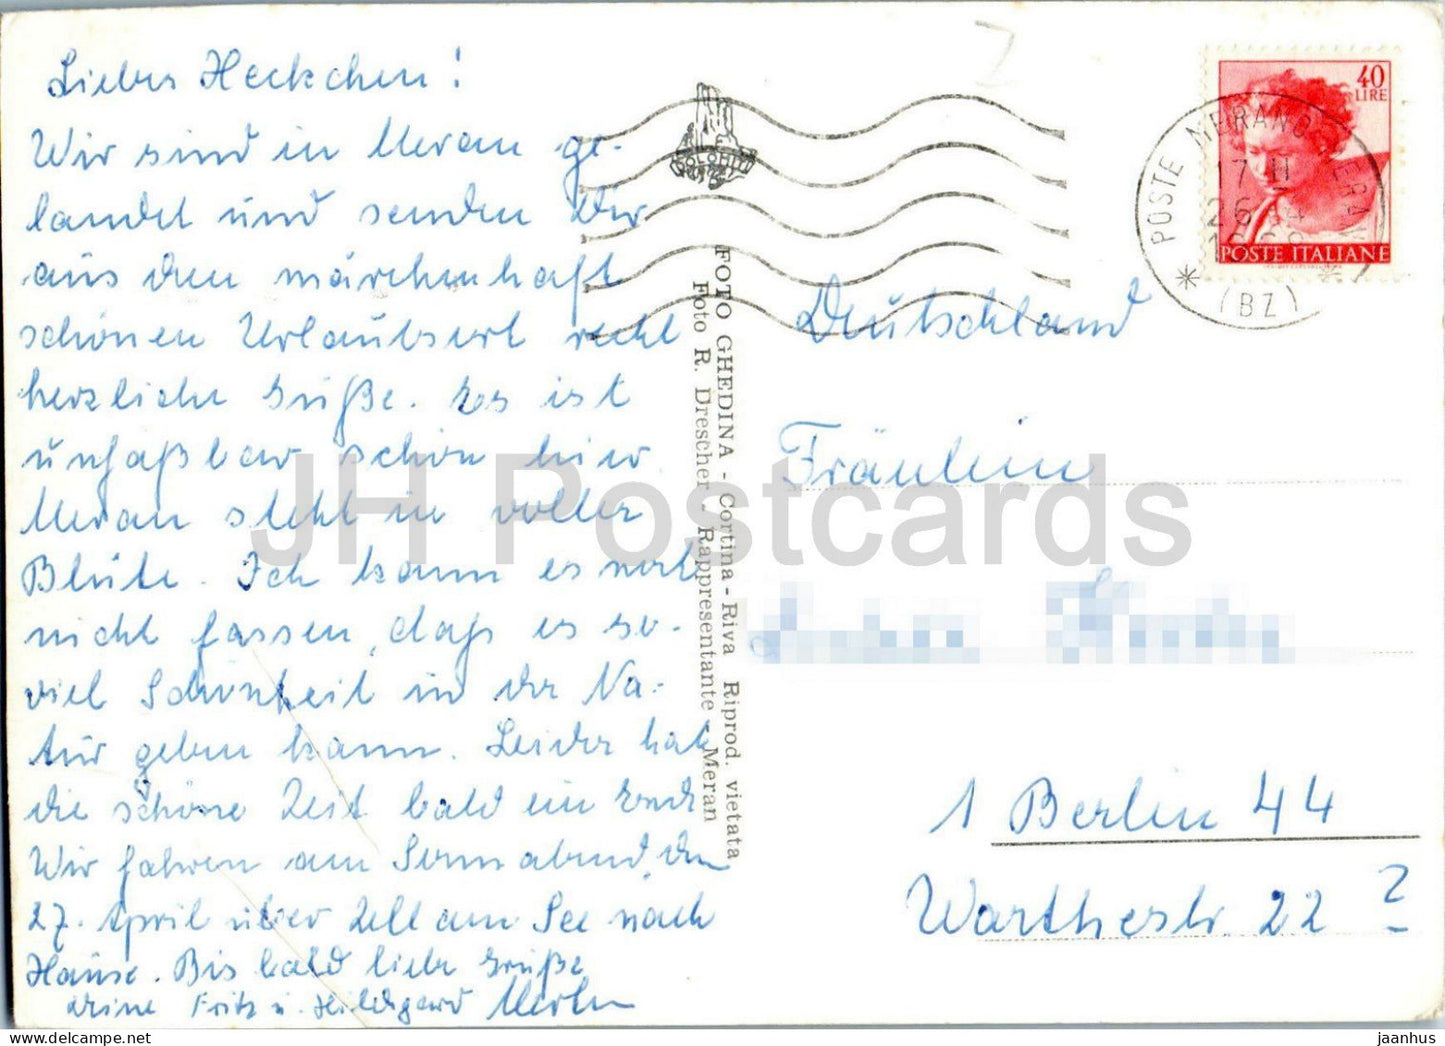 Liebes Heckchen!
Wir sind in Meran ge-
landet und senden Dir
aus dem märchenhaft
schönen Urlaubsort recht
herzliche Grüße. Es ist
unfaßbar schön hier
Meran steht in voller
Blüte. Ich kann es noch
nicht fassen, daß es so-
viel Schönheit in der Na-
tur geben kann. Leider hat
die schöne Zeit bald ein Ende
Wir fahren am Sonnabend, den
27. April über Zell am See nach
Hause. Bis bald liebe Grüße
Deine Fritz u. Hildegard
FOTO GHEDINA - Cortina - Riva Riprod. vietata
Foto R. Drescher - Rappresentante - Meran
DOLOMITI
40
LIRE
POSTE ITALIANE
POSTE MERANO MERAN
17 II
26
(BZ)
Deutschland
Fräulein
1 Berlin 44
Warthestr. 22?
JH Postcards
jaanhus